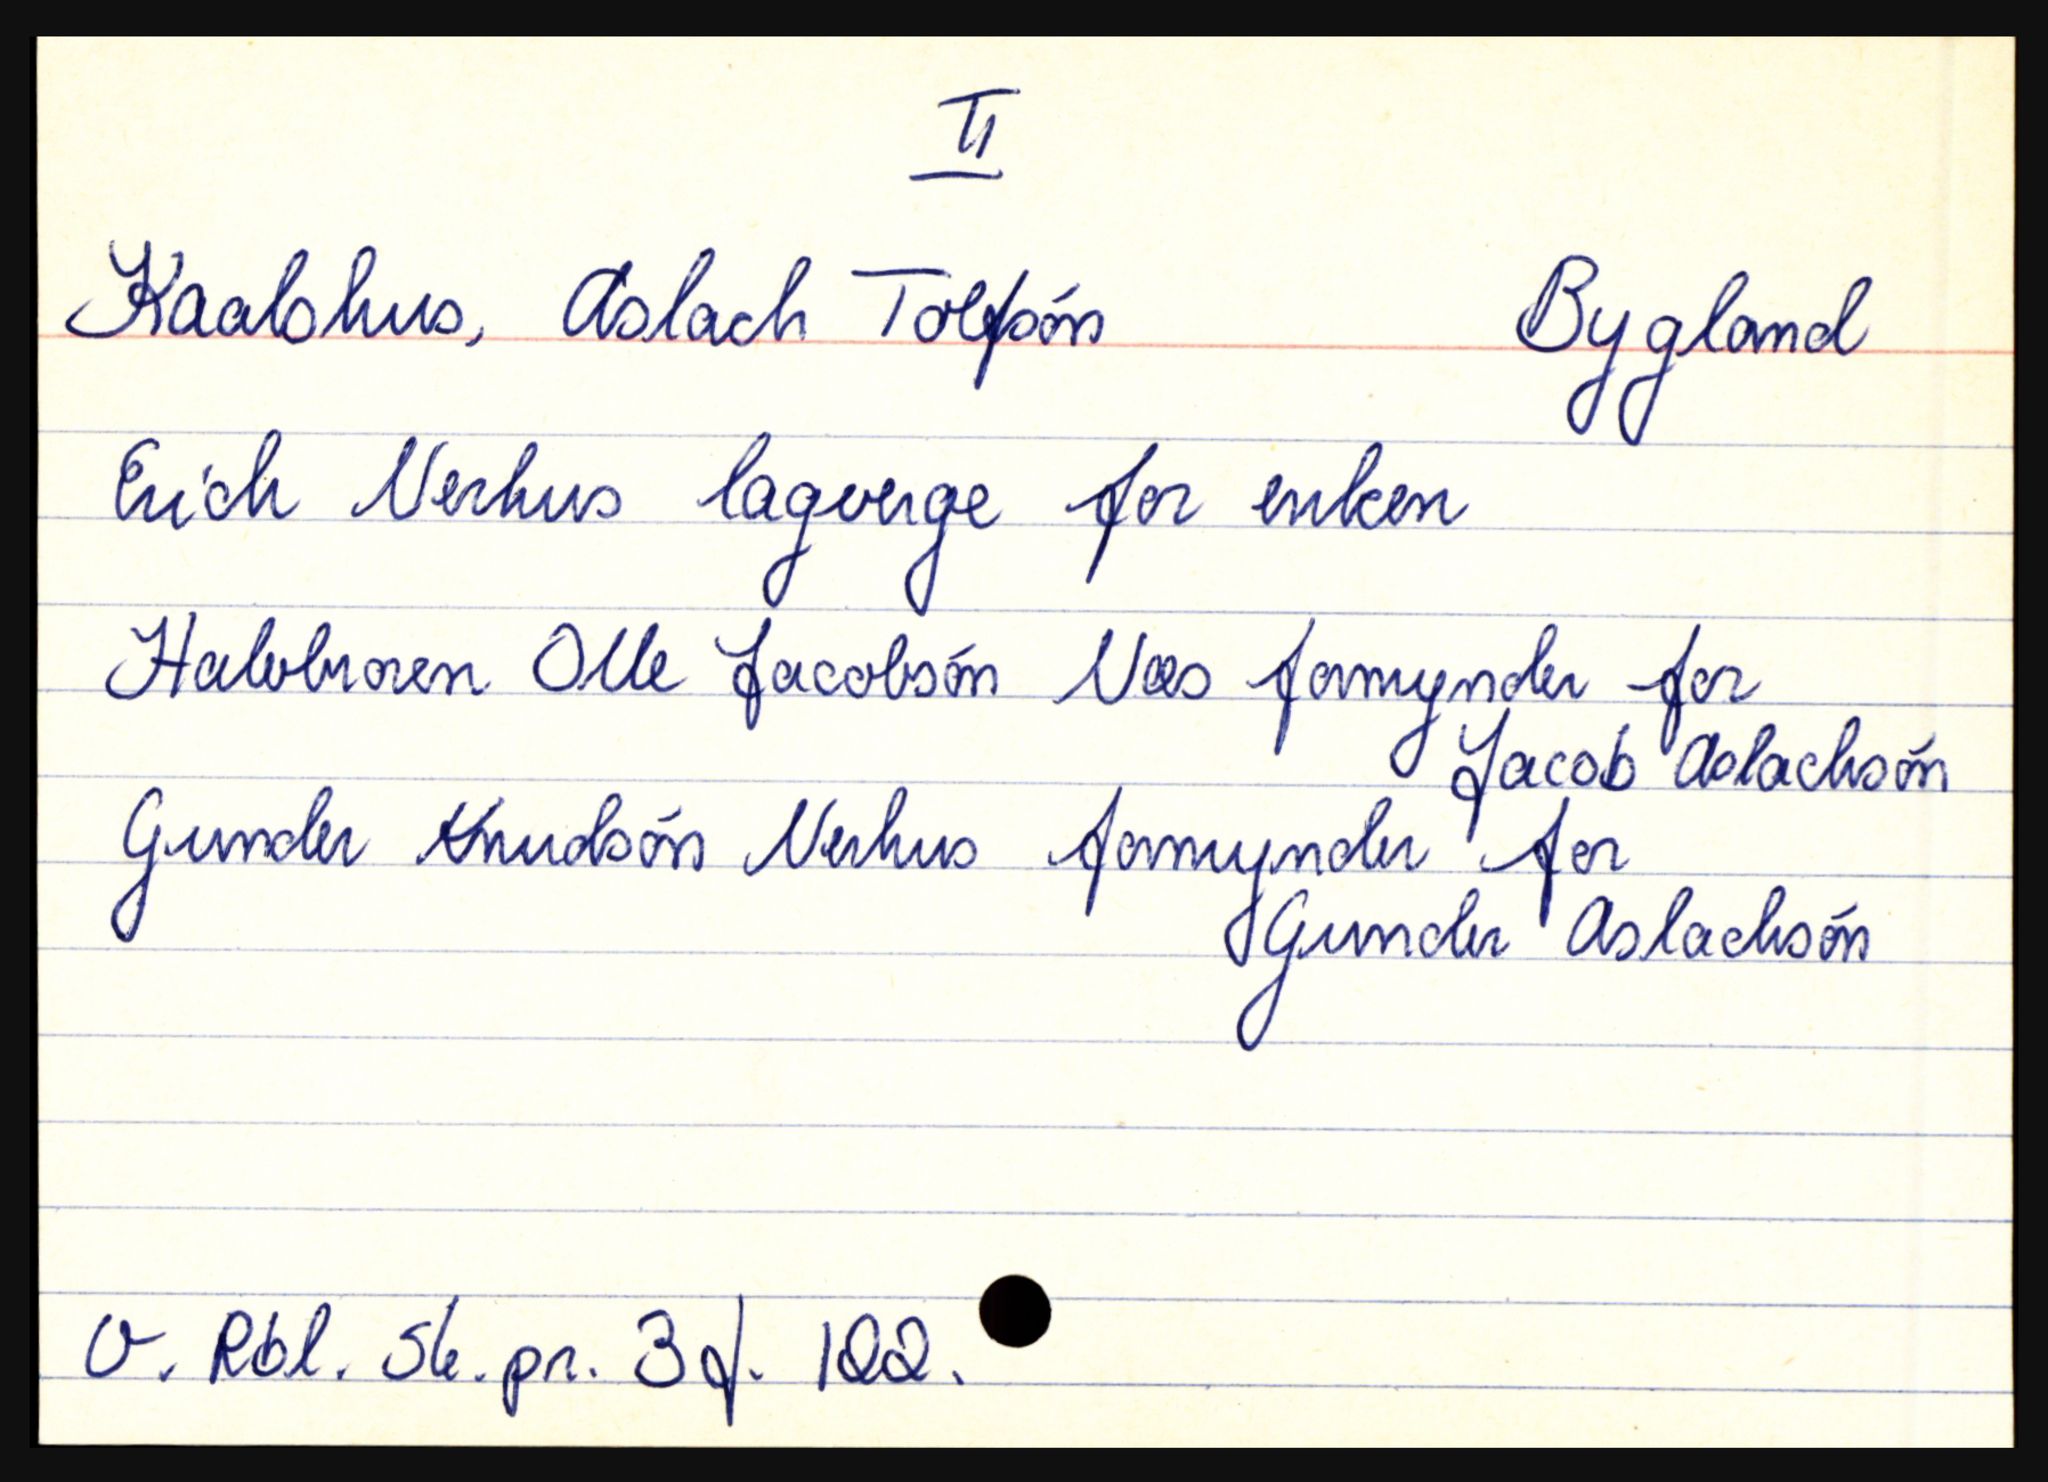 II
Kaalshus, Aslach Tolfsón Bygland
Erich Nerhus lagverge for enken
Halvbroren Olle Jacobsón Næs formynder for
Jacob Aslachsón
Gunder Knudsón Nerhus formynder for
Gunder Aslachsón
V. Rbl. Sk. pr. 3 f. 122.